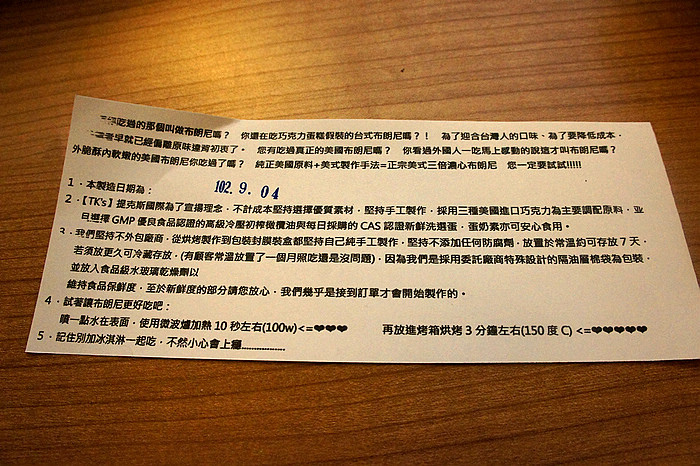 吃過的那個叫做布朗尼嗎？ 你還在吃巧克力蛋糕假裝的台式布朗尼嗎？！ 為了迎合台灣人的口味、為了要降低成本，
早就已經偏離原味違背初衷了。 您有吃過真正的美國布朗尼嗎？ 你看過外國人一吃馬上感動的說這才叫布朗尼嗎？
外脆酥內軟嫩的美國布朗尼你吃過了嗎？ 純正美國原料+美式製作手法=正宗美式三倍濃心布朗尼 您一定要試試!!!!!
1．本製造日期為： 102.9.04
2．【TK's】提克斯國際為了宣揚理念，不計成本堅持選擇優質素材，堅持手工製作，採用三種美國進口巧克力為主要調配原料，並
且選擇 GMP 優良食品認證的高級冷壓初榨橄欖油與每日採購的 CAS 認證新鮮洗選蛋，蛋奶素亦可安心食用。
3．我們堅持不外包廠商，從烘烤製作到包裝封膜裝盒都堅持自己純手工製作，堅持不添加任何防腐劑，放置於常溫約可存放 7 天，
若須放更久可冷藏存放，(有顧客常溫放置了一個月照吃還是沒問題)，因為我們是採用委託廠商特殊設計的隔油層棉袋為包裝，
並放入食品級水玻璃乾燥劑以
維持食品保鮮度，至於新鮮度的部分請您放心，我們幾乎是接到訂單才會開始製作的。
4．試著讓布朗尼更好吃吧：
噴一點水在表面，使用微波爐加熱 10 秒左右(100w)<=❤❤❤ 再放進烤箱烘烤 3 分鐘左右(150 度 C) <=❤❤❤❤❤
5．記住別加冰淇淋一起吃，不然小心會上癮................